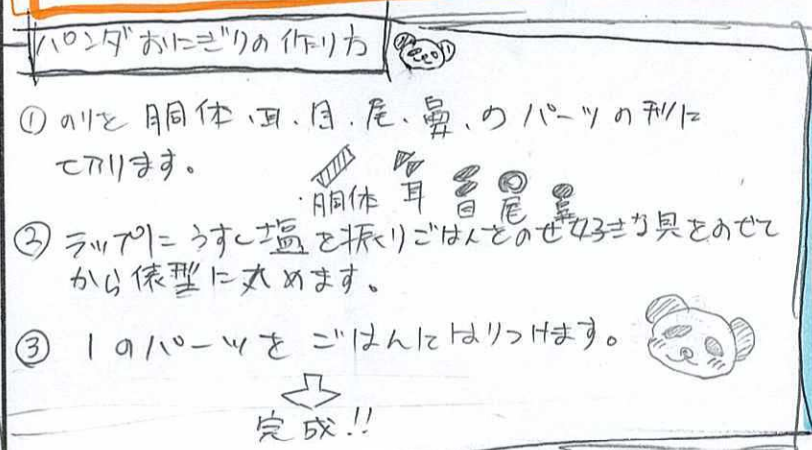 パンダおにぎりの作り方
① のりを胴体、耳、目、尾、鼻、のパーツの形に
切ります。
胴体 耳 目 尾 鼻
② ラップにうすく塩を振りごはんをのせ好きな具をのせて
から俵型に丸めます。
③ 1のパーツをごはんにはりつけます。
完成!!